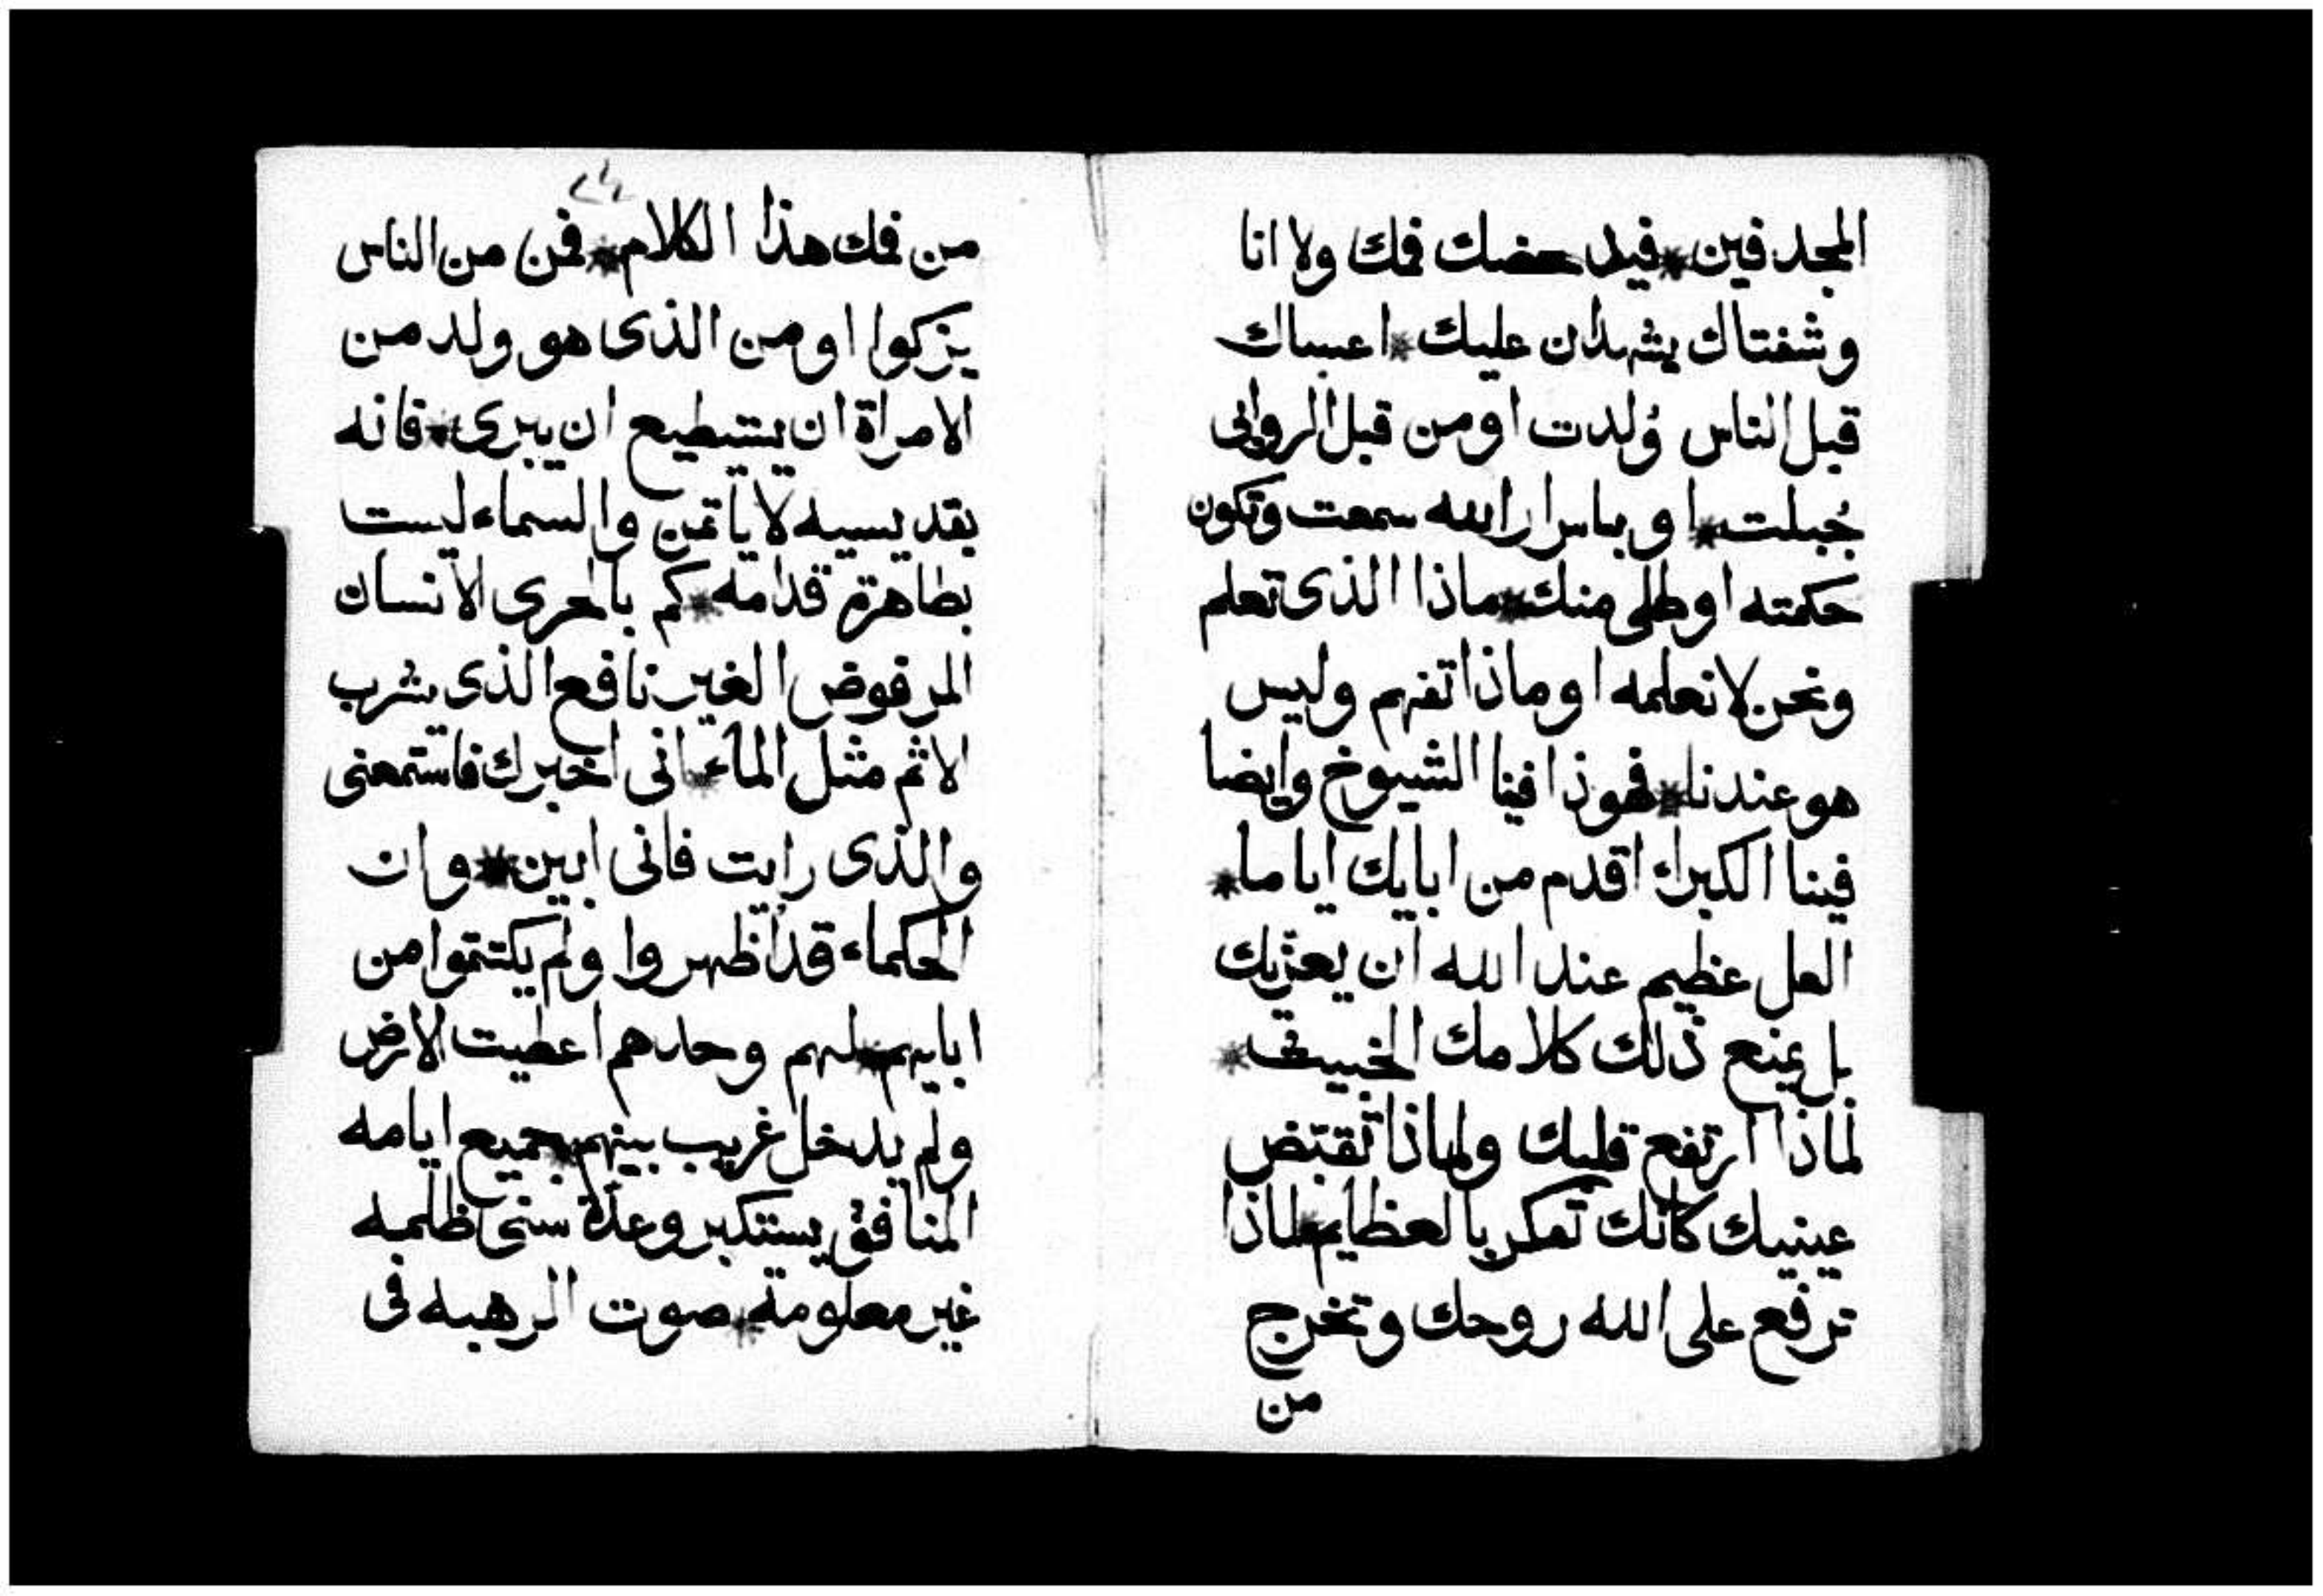 المجدفين * فيدحضك فمك ولا انا
وشفتاك يشهدان عليك * اعساك
قبل الناس وُلدت او من قبل الروابى
جُبلت * او باسرار الله سمعت وتكون
حكمته اوطى منك * ماذا الذى تعلم
ونحن لا نعلمه او ماذا تفهم وليس
هو عندنا * فهوذا فينا الشيوخ وايضا
فينا الكبراء اقدم من ابايك اياما *
العل عظيم عند الله ان يعزيك
بل يمنع ذلك كلامك الخبيث *
لماذا ارتفع قلبك ولماذا تقبض
عينيك كانك تفكر بالعظايم * لماذا
ترفع على الله روحك وتخرج
من
٢٤
من فمك هذا الكلام * فمن من الناس
يزكوا او من الذى هو ولد من
الامراة ان يستطيع ان يبرى * فانه
بقديسيه لا ياتمن والسماء ليست
بطاهرة قدامه * كم بالحرى الانسان
المرفوض الغير نافع الذى يشرب
الاثم مثل الماء * انى اخبرك فاستمعنى
والذى رايت فانى ابين * وان
الحكماء قد اظهروا ولم يكتتموا من
ابايهم * لهم وحدهم اعطيت الارض
ولم يدخل غريب بينهم * جميع ايامه
المنافق يستكبر وعدة سنى ظلمه
غير معلومة * صوت الرهبه فى